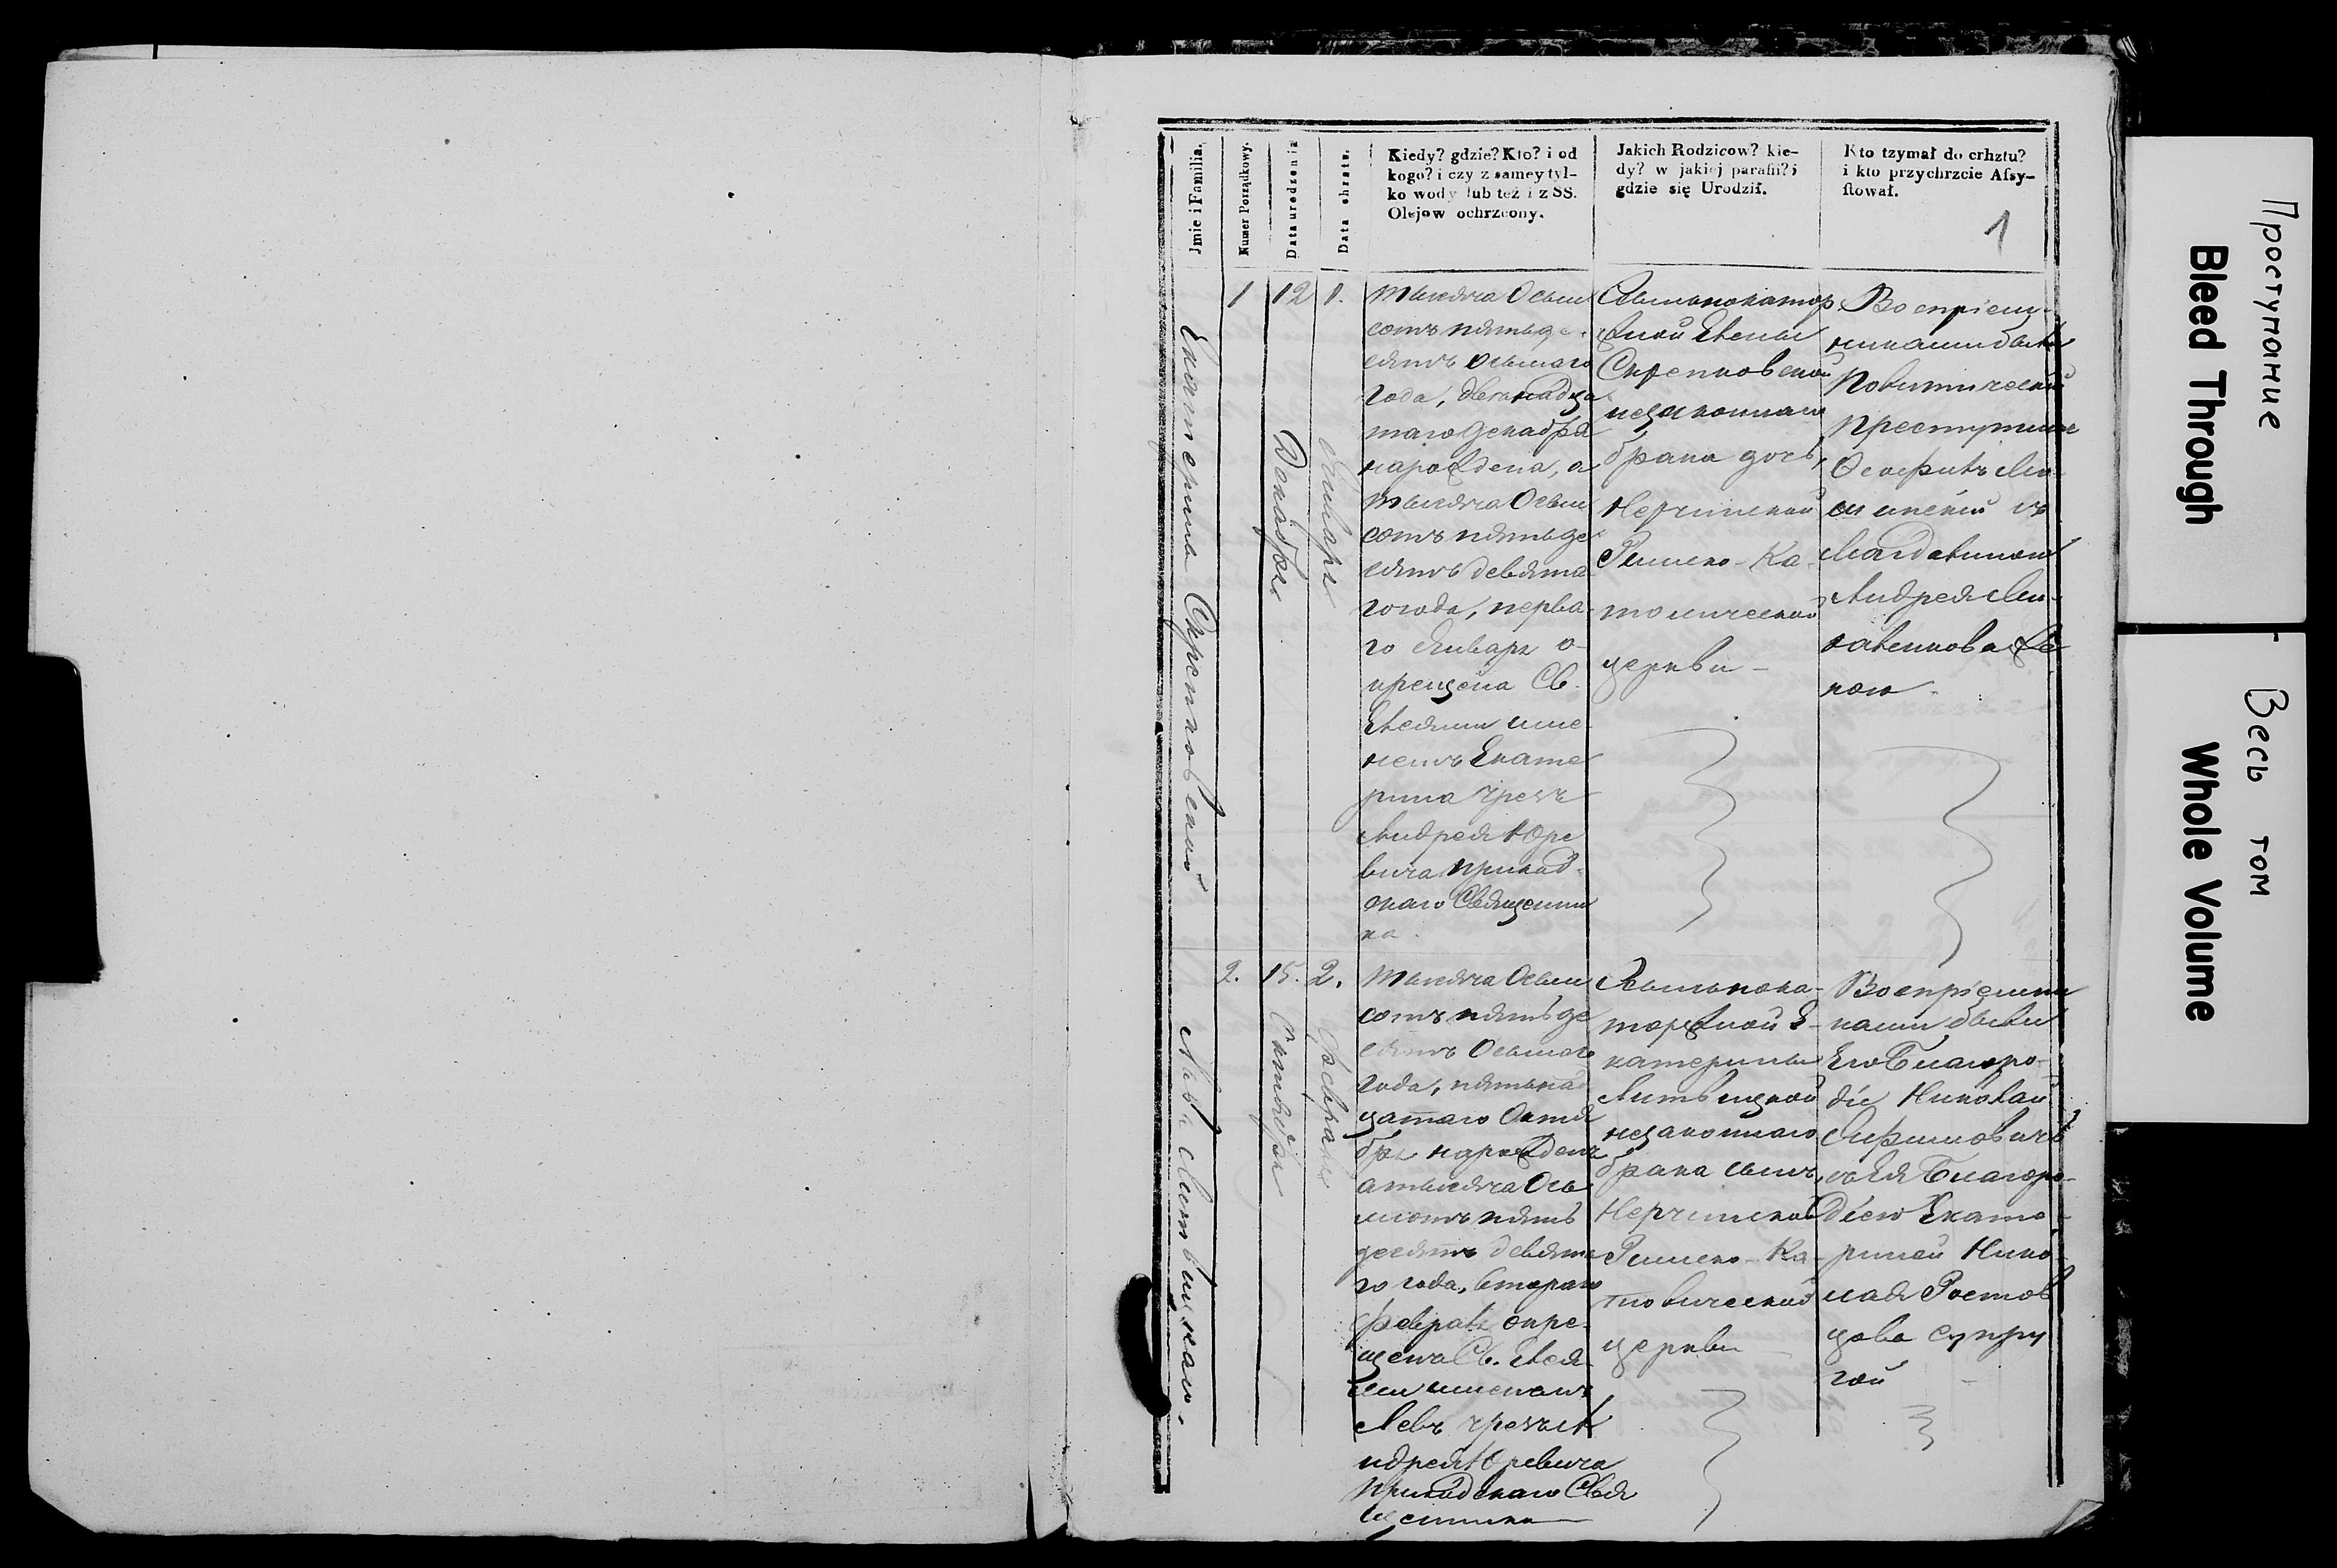 Jmie i Familia.
Numer Porządkowy.
Data urodzenia
Data chrztu.
Kiedy? gdzie? Kto? i od
kogo? i czy z samey tyl-
ko wody lub też i z SS.
Olejow ochrzcony.
Jakich Rodzicow? kie-
dy? w jakiej parafii? i
gdzie się Urodził.
Kto tzymał do crhztu?
i kto przychrzcie Afsy-
ftował.
1
Екатерина Скретковской
1
12
Декабря
1.
Января
тысяча Осьм
сотъ пятьде
сятъ осьмаго
года, двенадца
таго Декабря
нарождена, а
тысяча Осьм
сотъ пятьде
сятъ девята
го года, перва
го Января о-
крещена Св.
Елеями име
немъ Екате
рина чрезъ
Андрея Юре
вича приход
скаго Священни
ка.
Ссыльнокатор
жной Елены
незаконнаго
брака дочь,
Нерчинской
Римско-Ка-
толической
церкви-
Воспріем-
никами были
Политическій
преступник
Осафатъ
съ
Магдалиною
Андрея
женою-
Льва Литвицкаго.
2.
15.
Октября
2.
Февраля
тысяча Осьм
сотъ пятьде
сятъ Осьмаго
года, пятьнад
цатаго Октя
бря нарожденъ
а тысяча Ось
мсотъ пять
десятъ девята
го года, втораго
февраля окре-
щена Св. Елея-
ми имененъ
Левъ чрезъ А
ндрея Юревича
приходскаго Свя
щенника
Ссыльнока-
торжной Е-
катерины
Литвицкой
незаконнаго
брака сынъ,
Нерчинской
Римско-Ка-
толической
церкви
Воспріемни
ками были
Его Благоро-
діе Николай
съ Ея Благоро-
діею Екате-
риной Нико-
лая Ростов
цова супру
гой -
Проступание
Bleed Through
Весь том
Whole Volume